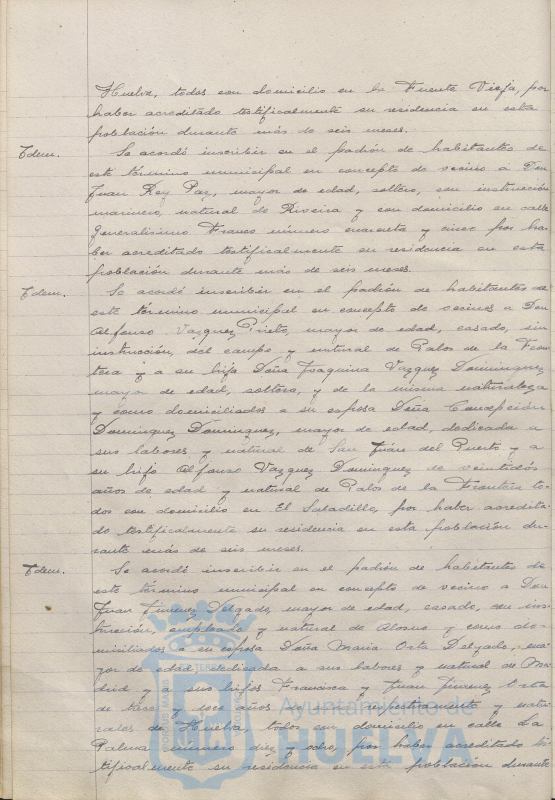 Huelva, todos con domicilio en la Fuente Vieja, por
haber acreditado testificalmente su residencia en esta
población durante más de seis meses.
Idem. Se acordó inscribir en el padrón de habitantes de
este término municipal en concepto de vecino a Don
Juan Rey Paz, mayor de edad, soltero, con instrucción
marinero, natural de Riveira y con domicilio en calle
Generalisimo Franco número cuarenta y cinco por ha-
ber acreditado testificalmente su residencia en esta
población durante más de seis meses.
Idem. Se acordó inscribir en el padrón de habitantes de
este término municipal en concepto de vecinos a Don
Alfonso Vazquez Prieto, mayor de edad, casado, sin
instrucción, del campo y natural de Palos de la Fron-
tera y a su hija Doña Joaquina Vazquez Dominguez
mayor de edad, soltera, y de la misma naturaleza
y como domiciliados a su esposa Doña Concepción
Dominguez Dominguez, mayor de edad, dedicada a
sus labores y natural de San Juan del Puerto y a
su hijo Alfonso Vazquez Dominguez de veintidós
años de edad y natural de Palos de la Frontera to-
dos con domicilio en El Saladillo, por haber acredita-
do testificalmente su residencia en esta población du-
rante más de seis meses.
Idem. Se acordó inscribir en el padrón de habitantes de
este término municipal en concepto de vecino a Don
Juan Jimenez Delgado, mayor de edad, casado, con ins-
trucción, empleado y natural de Alosno y como do-
miciliados a su esposa Doña Maria Orta Delgado, ma-
yor de edad, dedicada a sus labores y natural de Ma-
drid y a sus hijos Francisca y Juan Jimenez Orta
de trece y doce años de edad respectivamente y natu-
rales de Huelva, todos con domicilio en calle La
Palma número diez y ocho, por haber acreditado tes-
tificalmente su residencia en esta población durante
Ayuntamiento de
HUELVA